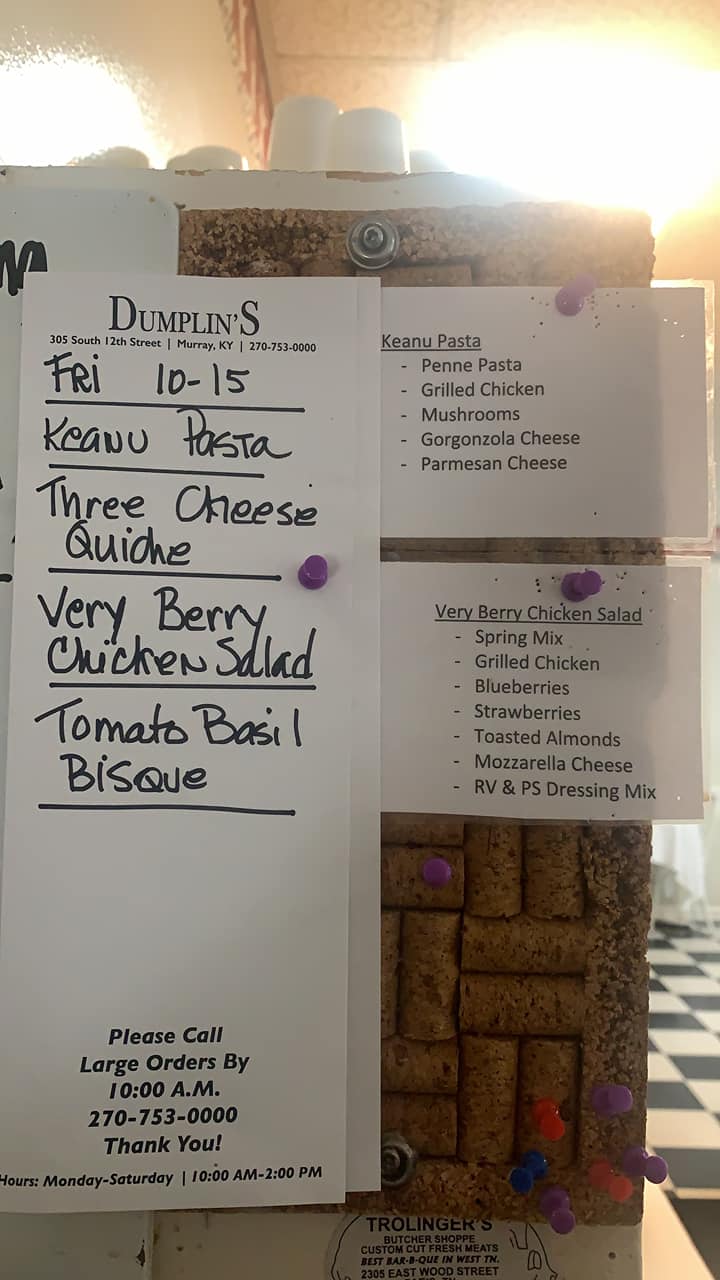 DUMPLIN'S
305 South 12th Street | Murray, KY | 270-753-0000
FRi 10-15
Keanu Pasta
Three Cheese
Quiche
Very Berry
Chicken Salad
Tomato Basil
Bisque
Please Call
Large Orders By
10:00 A.M.
270-753-0000
Thank You!
Hours: Monday-Saturday | 10:00 AM-2:00 PM
Keanu Pasta
- Penne Pasta
- Grilled Chicken
- Mushrooms
- Gorgonzola Cheese
- Parmesan Cheese
Very Berry Chicken Salad
- Spring Mix
- Grilled Chicken
- Blueberries
- Strawberries
- Toasted Almonds
- Mozzarella Cheese
- RV & PS Dressing Mix
TROLINGER'S
BUTCHER SHOPPE
CUSTOM CUT FRESH MEATS
BEST BAR-B-QUE IN WEST TN.
2305 EAST WOOD STREET